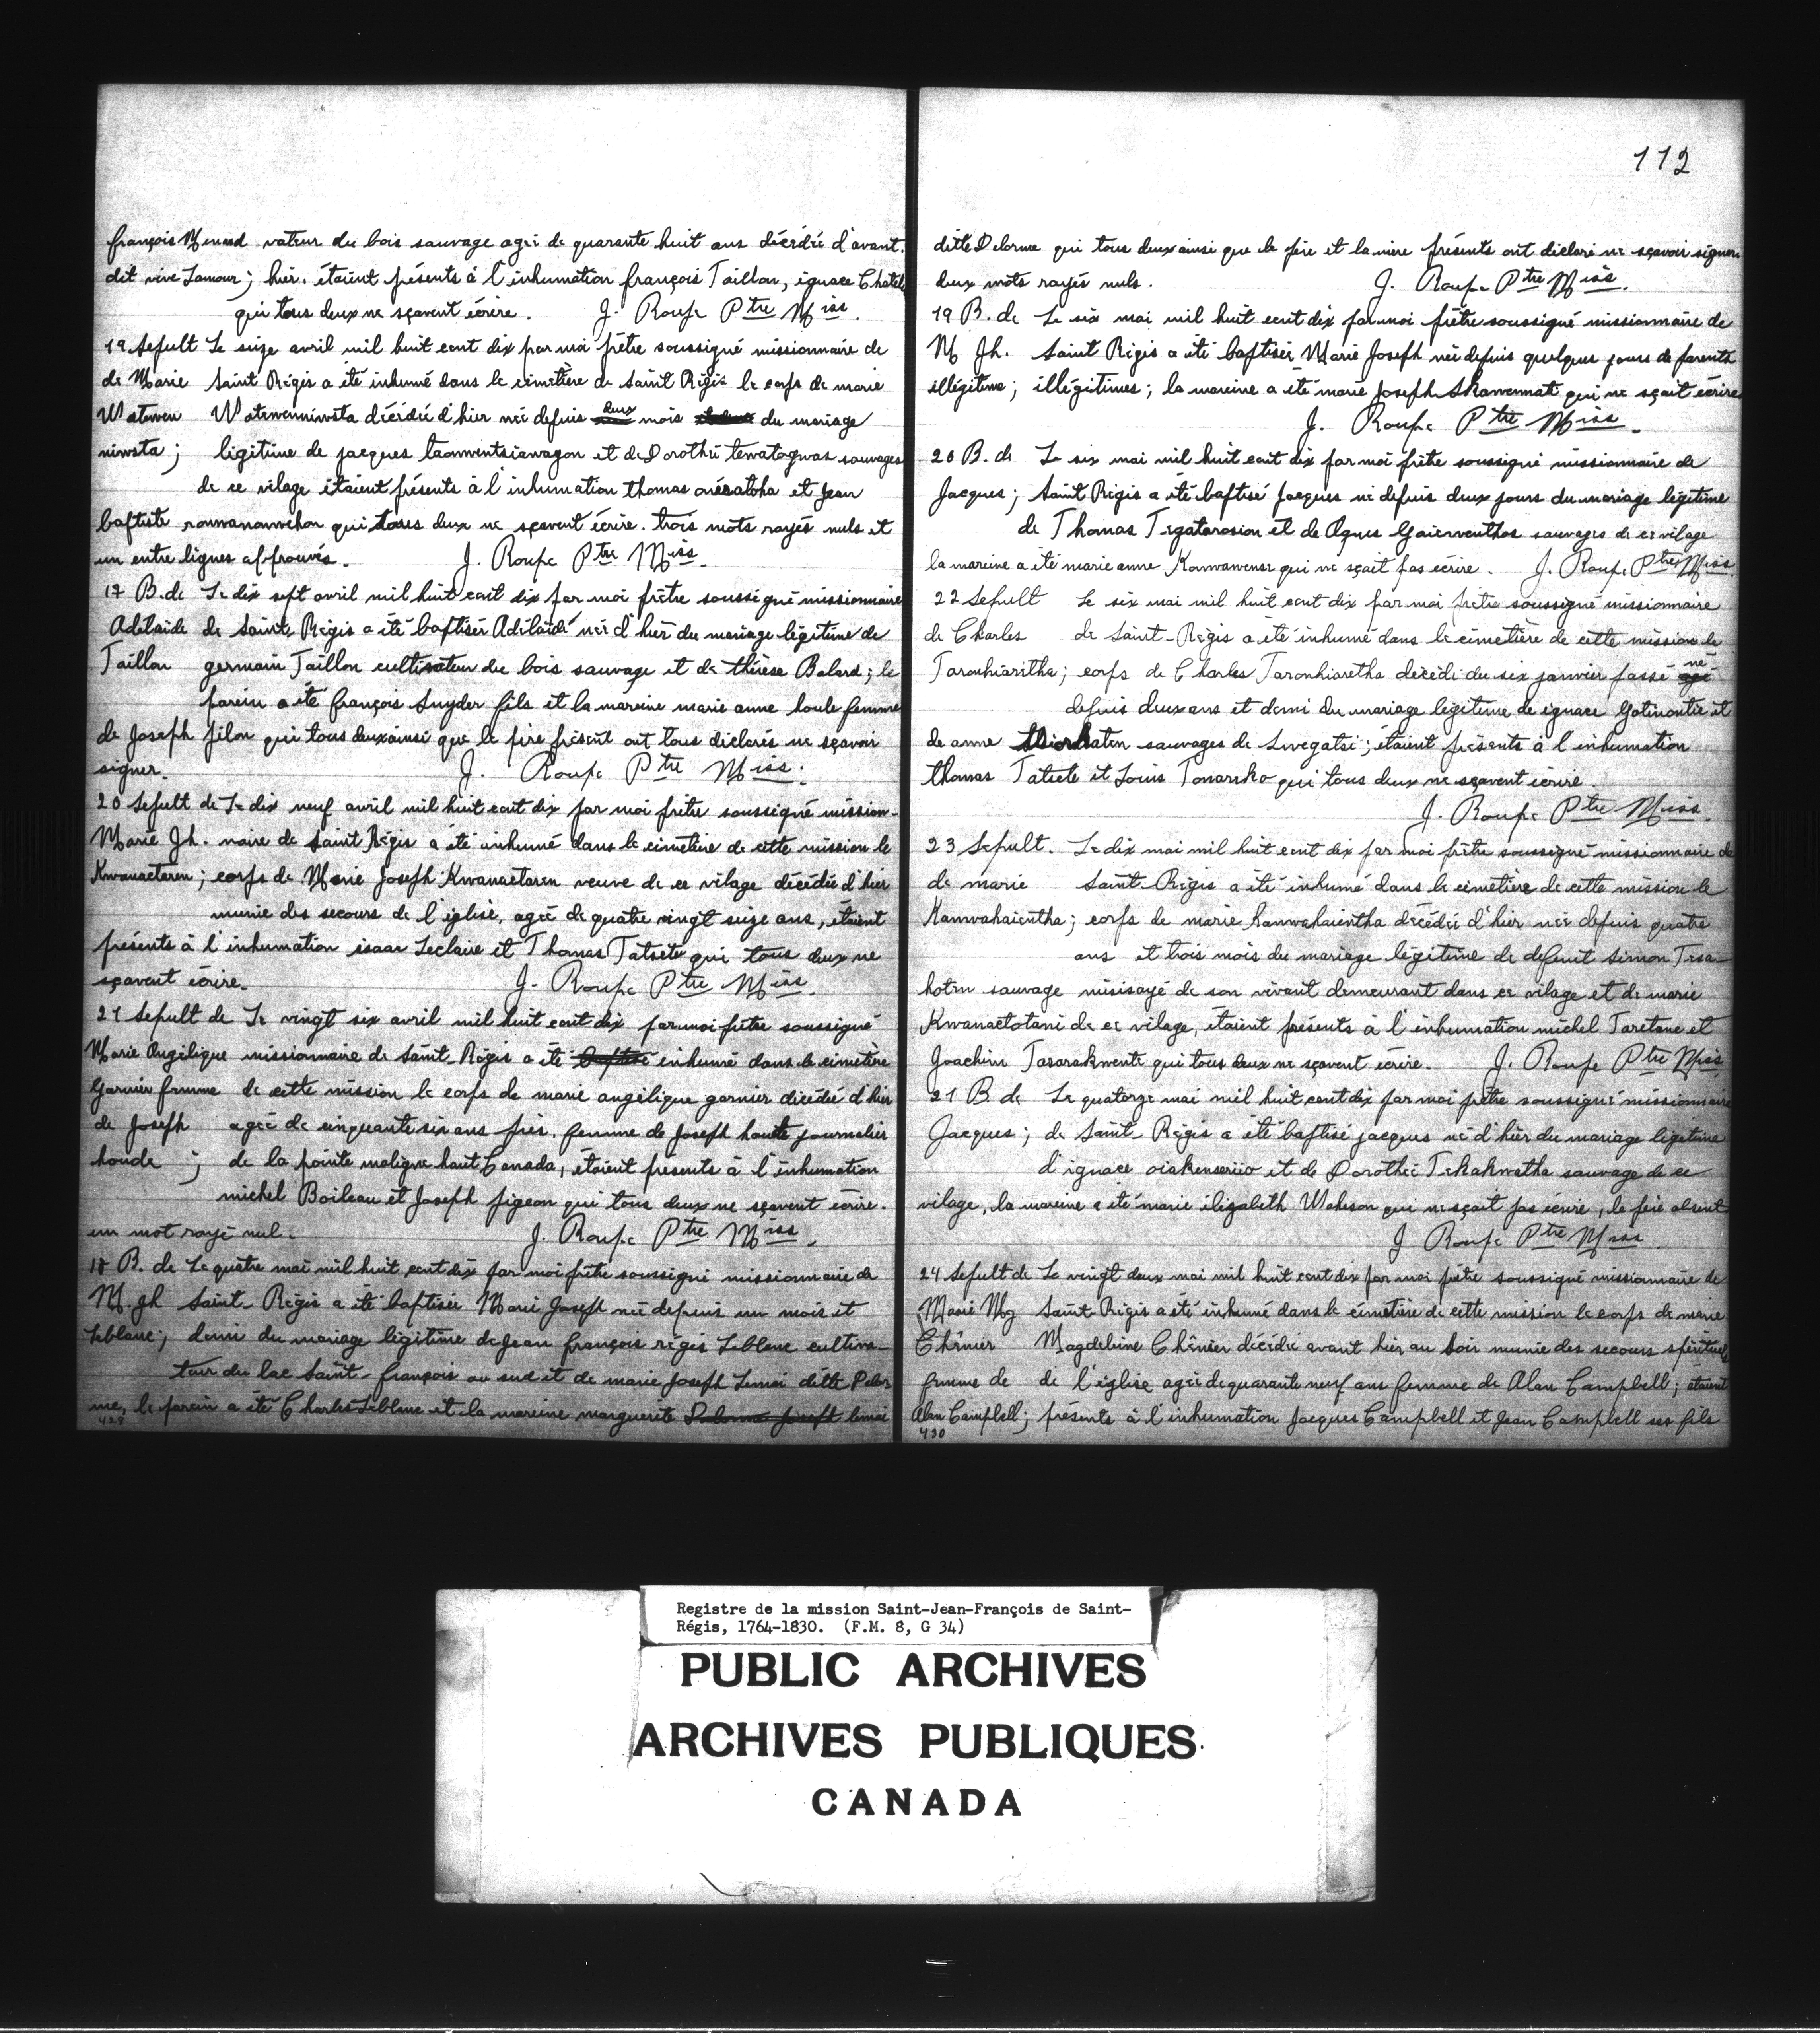 françois Menard vateur du bois sauvage ageé de quarante huit ans décédée d'avant.
dit vive Lamour; hier. étaient présents à l'inhumation françois Taillon, ignace Chatel
qui tous deux ne sçavent écrire. J. Roupe Ptre Miss.
19 Sepult Le seize avril mil huit cent dix par moi prêtre soussigné missionnaire de
de Marie Saint Régis a été inhumé dans le cimetière de Saint Régis le corps de marie
Watewen Watewenniwsta décédée d'hier née depuis deux mois du mariage
niwsta; légitime de jacques taonwentsiawagon et de Dorothée tewatogwas sauvages
de ce vilage étaient présents à l'inhumation thomas onésatoha et Jean
baptiste ronwanonwehon qui tous deux ne sçavent écrire. trois mots rayés nuls et
un entre lignes approuvés. J. Roupe Ptre Miss.
17 B. de Le dix sept avril mil huit cent dix par moi prêtre soussigné missionnaire
Adélaide de Saint Régis a été baptisée Adélaide née d'hier du mariage légitime de
Taillon germain Taillon cultivateur du bois sauvage et de thérèse Balard; le
parein a été françois Snyder fils et la mareine marie anne houle femme
de Joseph filon qui tous deux ainsi que le père présent ont tous déclarés ne sçavoir
signer. J. Roupe Ptre Miss.
20 Sepult de Le dix neuf avril mil huit cent dix par moi prêtre soussigné mission-
Marie Jh. naire de Saint Régis a été inhumé dans le cimetière de cette mission le
Kwanaetaren; corps de Marie Joseph Kwanaetaren veuve de ce vilage décédée d'hier
munie des secours de l'église, ageé de quatre vingt seize ans, étaient
présents à l'inhumation isaac Leclaire et Thomas Tatsete qui tous deux ne
sçavent écrire. J. Roupe Ptre Miss.
21 Sepult de Le vingt six avril mil huit cent dix par moi prêtre soussigné
Marie Angélique missionnaire de Saint-Régis a été baptisé inhumé dans le cimetière
Garnier femme de cette mission le corps de marie angélique garnier décédée d'hier
de Joseph ageé de cinquante six ans près, femme de Joseph houde journalier
houde; de la pointe maligne haut Canada, étaient présents à l'inhumation
michel Boileau et Joseph pigeon qui tous deux ne sçavent écrire.
un mot rayé nul. J. Roupe Ptre Miss.
18 B. de Le quatre mai mil huit cent dix par moi prêtre soussigné missionnaire de
M. jh Saint-Régis a été baptisée Marie Joseph née depuis un mois et
Leblanc; demi du mariage légitime de Jean françois régis Leblanc cultiva-
teur du lac Saint-françois au sud et de marie Joseph Lemai ditte Delor
me, le parein a été Charles Leblanc et la mareine marguerite Delorme Joseph lemai
429
112
ditte Delorme qui tous deux ainsi que le père et la mère présents ont déclaré ne sçavoir signer.
deux mots rayés nuls. J. Roupe Ptre Miss.
19 B. de Le six mai mil huit cent dix par moi prêtre soussigné missionnaire de
M Jh. Saint Régis a été baptisée Marie Joseph née depuis quelques jours de parents
illégitime; illégitimes; la mareine a été marie Joseph Skawennati qui ne sçait écrire
J. Roupe Ptre Miss.
20 B. de Le six mai mil huit cent dix par moi prêtre soussigné missionnaire de
Jacques; Saint Régis a été baptisé Jacques né depuis deux jours du mariage légitime
de Thomas Tegatarosion et de Agnes Gaierwenthos sauvages de ce vilage
la mareine a été marie anne Konwawense qui ne sçait pas écrire. J. Roupe Ptre Miss.
22 Sepult Le six mai mil huit cent dix par moi prêtre soussigné missionnaire
de Charles de Saint-Régis a été inhumé dans le cimetière de cette mission le
Taronhiaritha; corps de Charles Taronhiaretha décédé du six janvier passé agé né
depuis deux ans et demi du mariage légitime de ignace Gotinontie et
de anne sauvages de Swegatsi; étaient présents à l'inhumation
thomas Tatsete et Louis Tonaresko qui tous deux ne sçavent écrire.
J. Roupe Ptre Miss.
23 Sepult. Le dix mai mil huit cent dix par moi prêtre soussigné missionnaire de
de marie Saint-Régis a été inhumé dans le cimetière de cette mission le
Kanwahaientha; corps de marie Kanwahaientha décédée d'hier née depuis quatre
ans et trois mois du mariage légitime de defunt Simon Tesa-
hoten sauvage misisagé de son vivant demeurant dans ce vilage et de marie
Kwanaetotani de ce vilage, étaient présents à l'inhumation michel Taretane et
Joachim Tasarakwente qui tous deux ne sçavent écrire. J. Roupe Ptre Miss
21 B de Le quatorze mai mil huit cent dix par moi prêtre soussigné missionnaire
Jacques; de Saint-Régis a été baptisé jacques né d'hier du mariage légitime
d'ignace oiakenseriio et de Dorothée Tekakwatha sauvage de ce
vilage, la mareine a été marie élizabeth Watieson qui ne sçait pas écrire, le père absent
J Roupe Ptre Miss.
24 Sepult de Le vingt deux mai mil huit cent dix par moi prêtre soussigné missionnaire de
Marie Mg Saint-Régis a été inhumé dans le cimetière de cette mission le corps de marie
Chênier Magdeleine Chênier décédée avant hier au soir munie des secours spirituels
femme de de l'église ageé de quarante neuf ans femme de Alan Campbell; étaient
Alan Campbell; présents à l'inhumation Jacques Campbell et Jean Campbell ses fils
430
Registre de la mission Saint-Jean-François de Saint-
Régis, 1764-1830. (F.M. 8, G 34)
PUBLIC ARCHIVES
ARCHIVES PUBLIQUES
CANADA